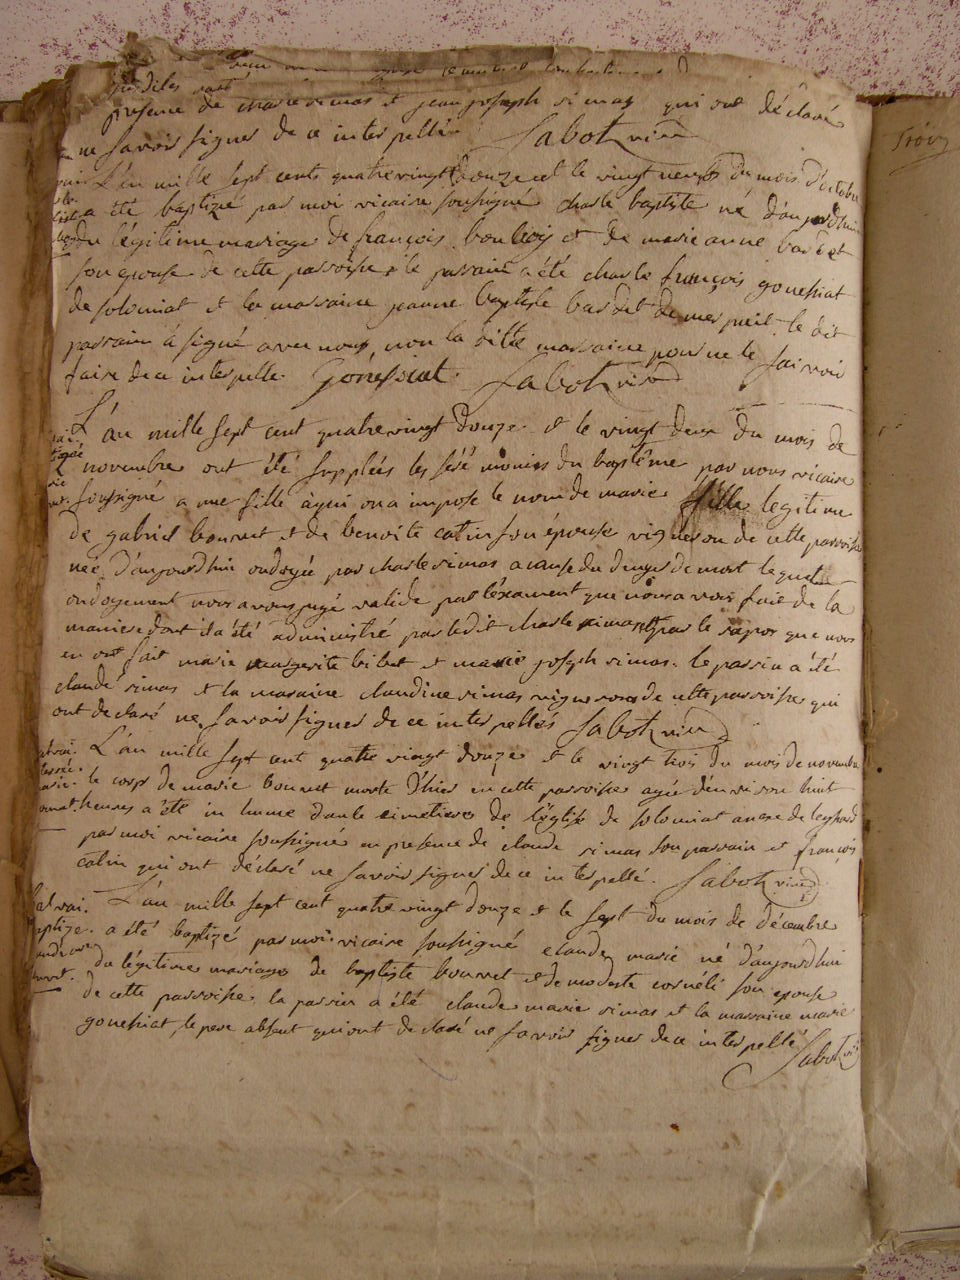 presence de marie simas et jean joseph simas qui ont déclaré
ne savoir signer de ce interpellé Sabot vic
L'an mille sept cents quatrevingt douze et le vingt neuf du mois d'octobre
a été baptizé par moi vicaire soussigné charle baptiste né d'aujourdhui
du légitime mariage de françois et de marie anne bardet
son epouse de cette parroisse, le parrain a été charle françois gonessiat
de soloniat et la marraine jeanne baptiste bardet de le dit
parrain a signé avec nous non la ditte marraine pour ne le sairvoir
faire de ce interpelle. Gonéssiat Sabot vic
L'an mille sept cent quatrevingt douze et le vingt deux du mois de
novembre ont été supplées les séré monies du baptême par nous vicaire
soussigné a une fille à qui on a imposé le nom de marie fille legitime
de gabriel bonnet et de benoite catin son épouse vigneron de cette parroisse
née d'aujourdhui ondoyée par charle simas a cause du denger de mort lequel
ondoyement nous avons jugé valide par l'éxament que nous avons fait de la
maniere dont il a été administré par ledit charle simas et par le rapor que nous
en ont fait marie margerite bibet et marie joseph simas. le parrin a été
claude simas et la maraine claudine simas vignerons de cette parroisse qui
ont declaré ne savoir signer de ce interpellés Sabot vic
L'an mille sept cent quatre vingt douze et le vingt trois du mois de novembre
le corp de marie bonnet morte d'hier en cette parroisse agée d'environ huit
heures a été in hume dan le cimetiere de l'église de soloniat anexe de
par moi vicaire soussigné en presence de claude simas son parrain et françois
catin qui ont déclaré ne savoir signer de ce interpellé. Sabot vic
L'an mille sept cent quatre vingt douze et le sept du mois de décembre
a été baptizé par moi vicaire soussigné claude marie né d'aujourdhui
du légitime mariage de baptiste bonnet et de modeste cornéli son epouse
de cette parroisse, le parrin a été claude marie simas et la marraine marie
gonessiat, le pere absent qui ont declaré ne savoir signer de ce interpellé
Sabot vic